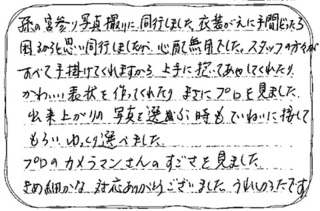 孫の宮参り写真撮りに、同行しました。衣装がえに手間どったら
困るからと思い同行しましたが、心配無用でした。スタッフの方々が
すべて手掛けてくれますから、上手に抱いてあやしてくれたり、
かわいい表情を作ってくれたり まさにプロを見ました。
出来上がりの写真を選ぶ時もていねいに接して
もらい ゆっくり選べました。
プロのカメラマンさんのすごさを見ました。
きめ細かな対応ありがとうございました。うれしかったです。